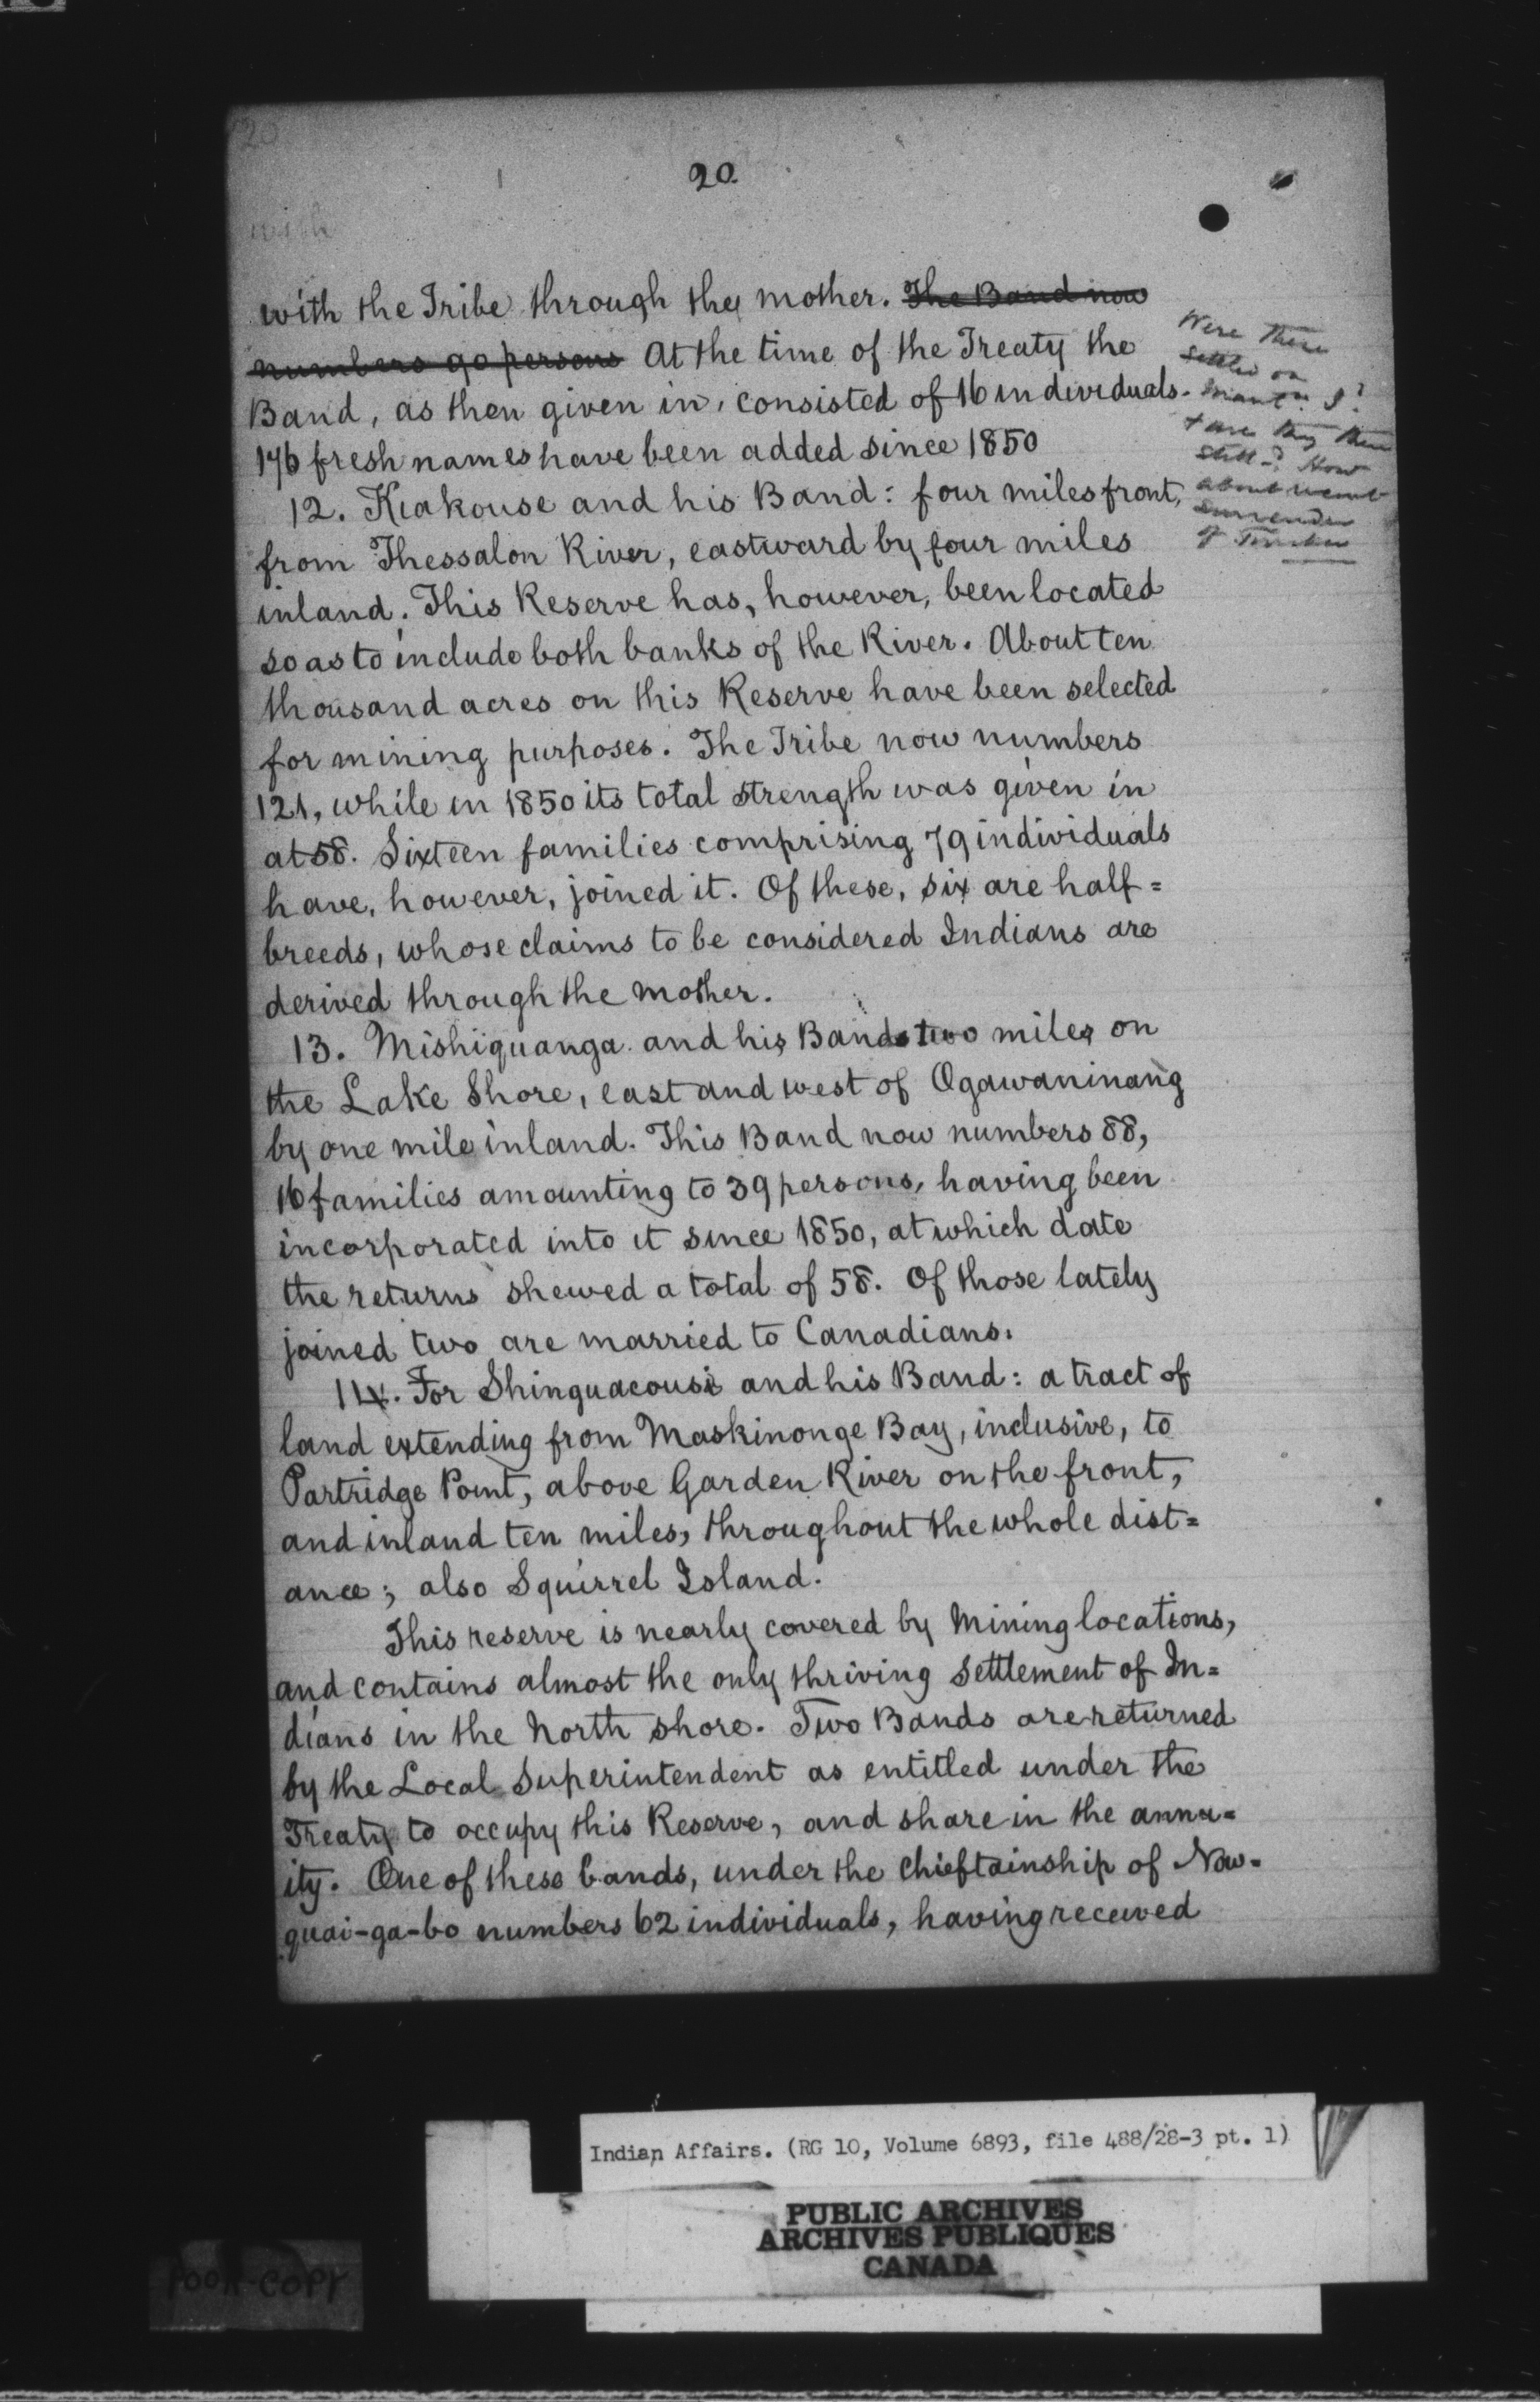 20
20.
with
with the Tribe through the mother. The Band now
numbers 90 persons At the time of the Treaty the
Band, as then given in, consisted of 16 individuals.
176 fresh names have been added since 1850
12. Kiakouse and his Band: four miles front,
from Thessalon River, eastward by four miles
inland. This Reserve has, however, been located
so as to include both banks of the River. About ten
thousand acres on this Reserve have been selected
for mining purposes. The Tribe now numbers
121, while in 1850 its total strength was given in
at 58. Sixteen families comprising 79 individuals
have, however, joined it. Of these, six are half=
breeds, whose claims to be considered Indians are
derived through the mother.
13. Mishiquanga and his Band two miles on
the Lake Shore, east and west of Ogawaninang
by one mile inland. This Band now numbers 88,
16 families amounting to 39 persons, having been
incorporated into it since 1850, at which date
the returns shewed a total of 58. Of those lately
joined two are married to Canadians.
14. For Shinguacousi and his Band: a tract of
land extending from Maskinonge Bay, inclusive, to
Partridge Point, above Garden River on the front,
and inland ten miles, throughout the whole dist=
ance; also Squirrel Island.
This reserve is nearly covered by Mining locations,
and contains almost the only thriving settlement of In=
dians in the North shore. Two Bands are returned
by the Local Superintendent as entitled under the
Treaty to occupy this Reserve, and share in the annu=
ity. One of these bands, under the Chieftainship of Naw=
quai-ga-bo numbers 62 individuals, having received
Were these
settled on
I?
& are they there
still-? How
about
surrender
of Timber
Indian Affairs. (RG 10, Volume 6893, file 488/28-3 pt. 1)
PUBLIC ARCHIVES
ARCHIVES PUBLIQUES
CANADA
POOR COPY